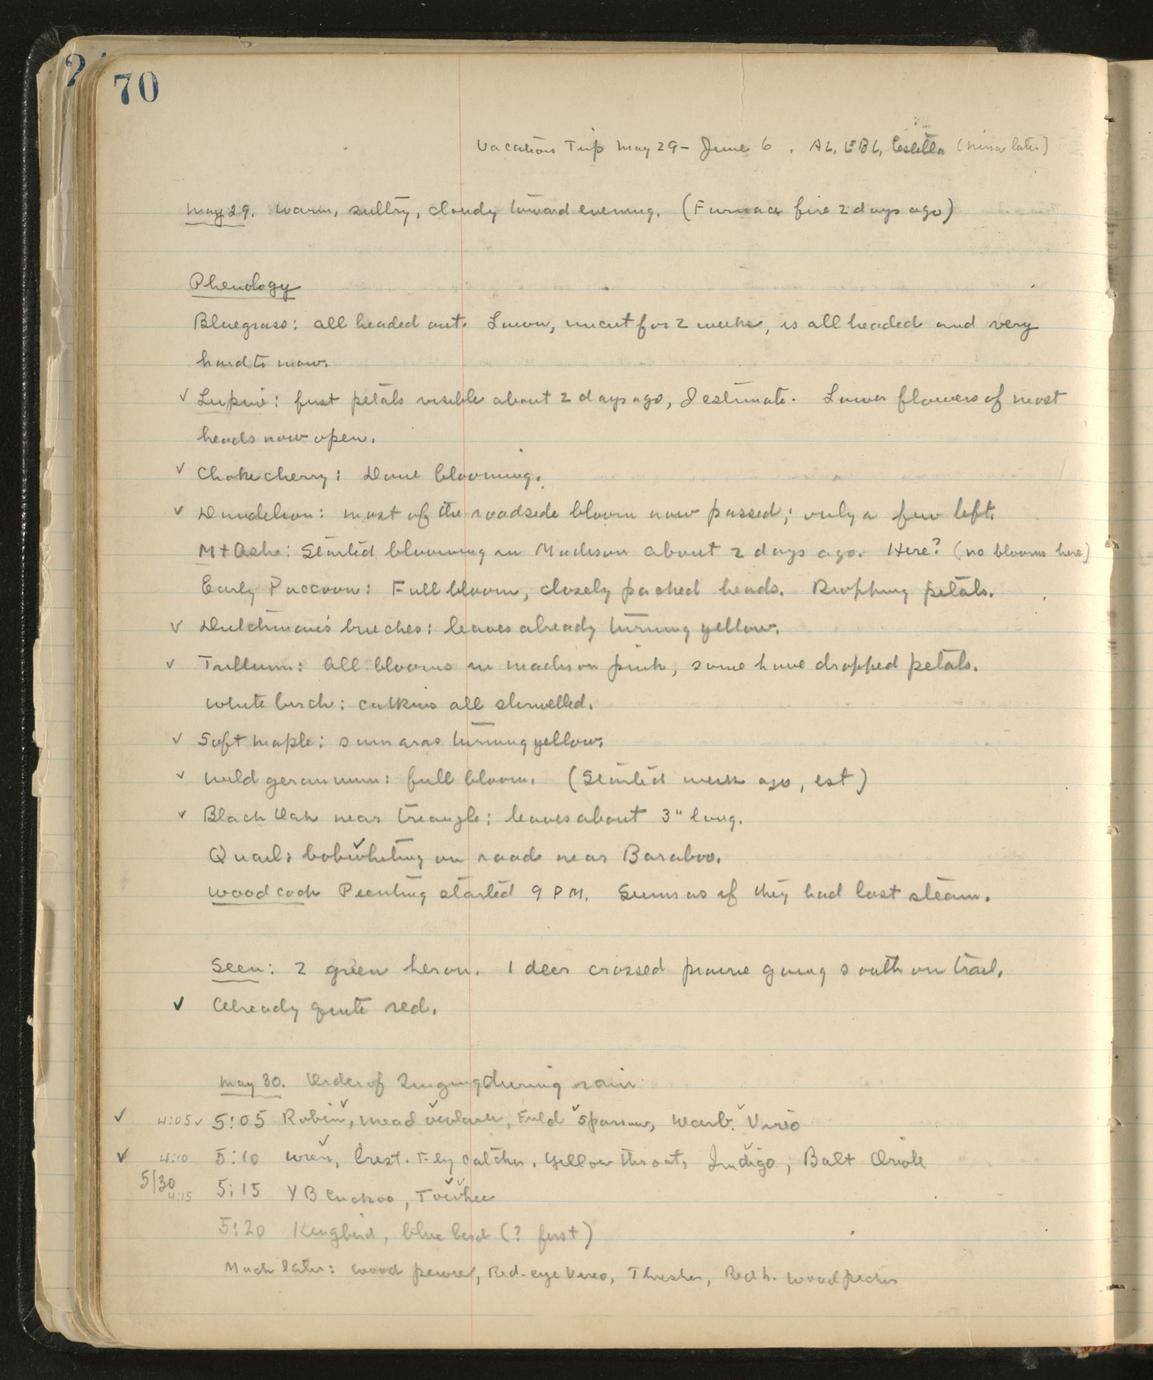 70
Vacation Trip May 29 - June 6. AL, EBL, Estella (Nina later)
May 29. Warm, sultry, cloudy toward evening. (Furnace fire 2 days ago)
Phenology
Bluegrass: all headed out. Lawn, uncut for 2 weeks, is all headed and very
hard to mow.
✓ Lupine: first petals visible about 2 days ago, I estimate. Lower flowers of most
heads now open.
✓ Chokecherry: Done blooming.
✓ Dandelion: most of the roadside bloom now passed; only a few left.
Mt Ash: Started blooming in Madison about 2 days ago. Here? (no blooms here)
Early Puccoon: Full bloom, closely packed heads. Dropping petals.
✓ Dutchman's breeches: leaves already turning yellow.
✓ Trillium: All blooms in Madison pink, some have dropped petals.
White birch: catkins all shrivelled.
✓ Soft maple: samaras turning yellow.
✓ Wild geranium: full bloom. (Started week ago, est)
✓ Black Oak near triangle: leaves about 3" long.
Quail: bobwhiting on road near Baraboo.
Woodcock Peenting started 9 PM. Seems as if they had lost steam.
Seen: 2 green heron. 1 deer crossed prairie going south on trail.
✓ Already quite red.
May 30. Order of Singing during rain
✓ 4:05 ✓ 5:05 Robin, Meadowlark, Field Sparrow, Warb. Vireo
✓ 4:10 5:10 Wren, Crest. Flycatcher, Yellowthroat, Indigo, Balt Oriole
5/30 4:15 5:15 YB Cuckoo, Towhee
5:20 Kingbird, bluebird (? first)
Much later: wood pewee, Red-eye Vireo, Thrasher, Red h. woodpecker